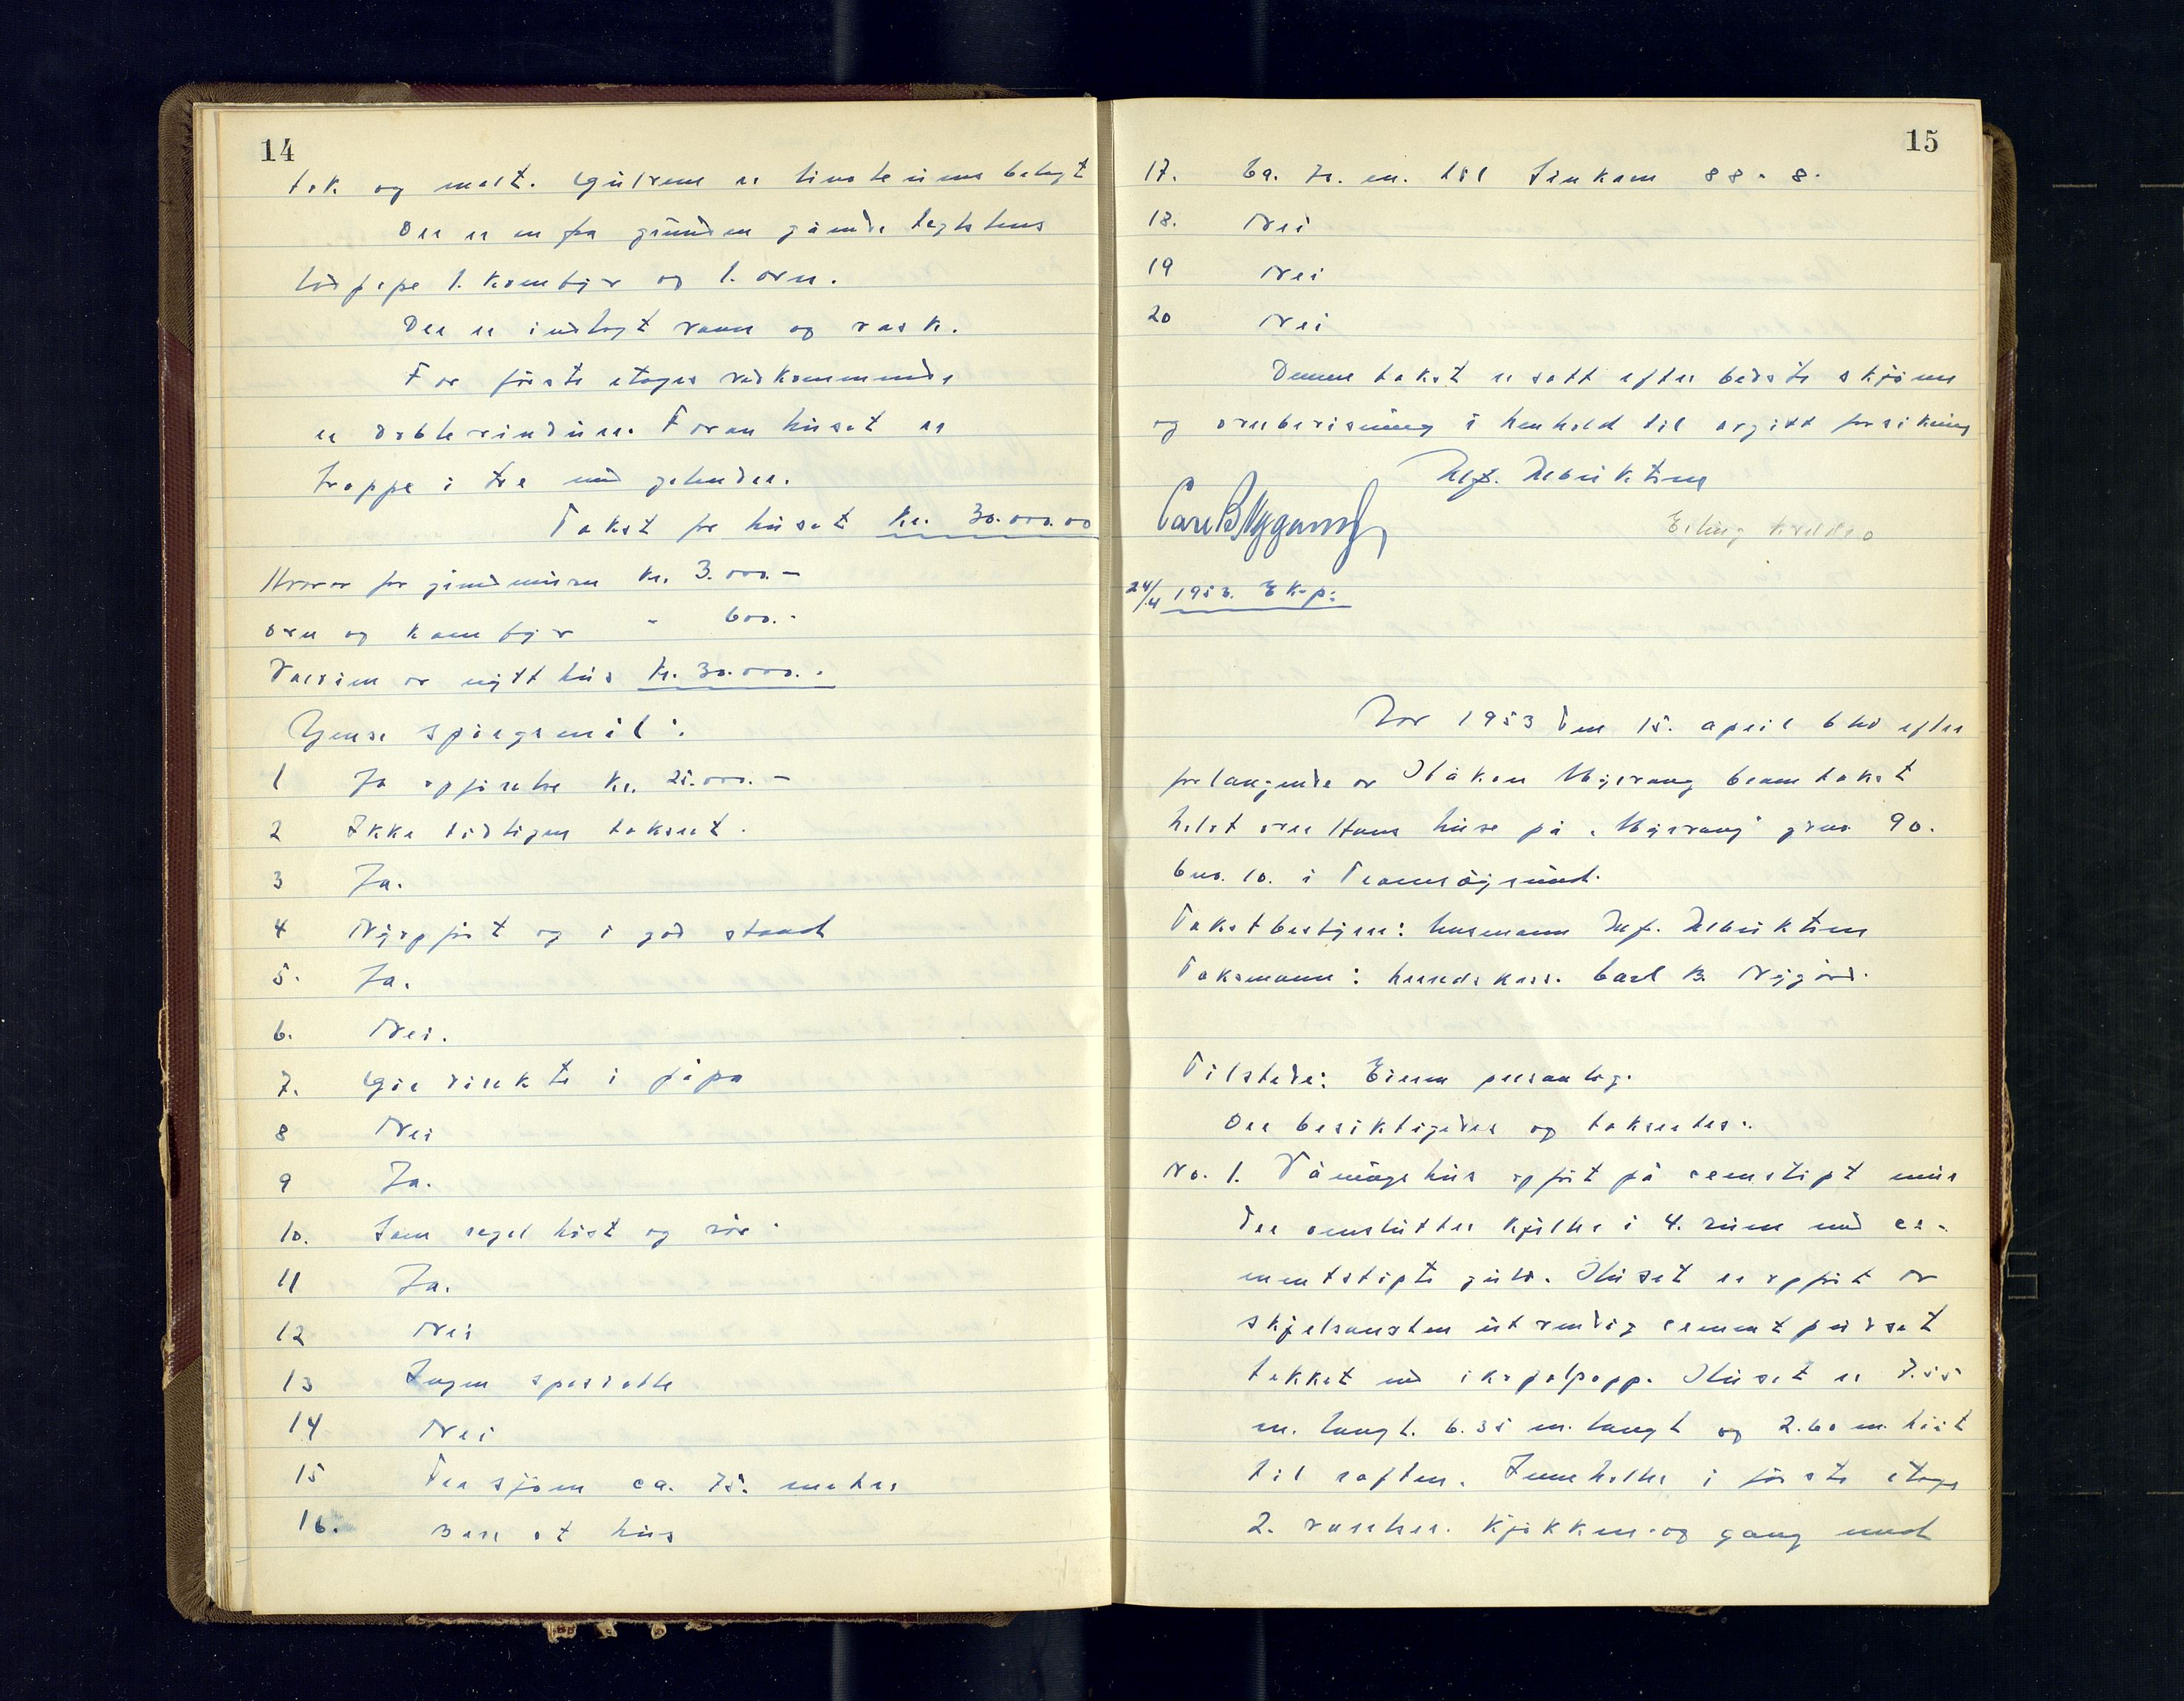 14
tak og malt. Gulvene er linoleums belagt
Der er en fra grunden gående teglstens
lødpipe 1. komfyr og 1. ovn.
Der er indlagt vann og vask.
For første etages vedkommende
er doble vinduer. Foran huset er
trappe i tre med gelender.
Takst for huset kr. 30.000.00
Hvorav for grundmuren kr. 3.000.-
ovn og komfyr " 600.-
Verdien av nytt hus kr. 30.000.-
Gense spørgsmål:
1 Ja opførelse kr. 25.000.-
2 Ikke tidligere taksert.
3 Ja.
4 Nyopført og i god stand
5. Ja.
6. Nei.
7. Går direkte i pipa
8 Nei
9 Ja.
10. Som regel høst og vår.
11 Ja.
12 Nei
13 Ingen spesielle
14 Nei
15 Fra sjøen ca. 75. meter
16. Bare et hus
15
17. Ca. 70. m. til 88. 8.
18. Nei
19 Nei
20 Nei
Denne takst er satt efter bedste skjønn
og overbevisning i henhold til avgitt forsikring
Alf. Albriktsen
Carl B Nygaard
Erling
24/4 1953. Ekp:
Aar 1953 den 15. april blev efter
forlangende av Håkon Myrvang brantakst
holdt over Hans huse på "Myrvang" grno. 90.
bno. 10. i Tromsøysund.
Takstbestyrer: lensmann Alf. Albriktsen
Taksmann: herredskass. Carl B. Nygård.
Tilstede: Eieren personlig.
Der besiktigedes og taksertes:
No. 1. Våningshus opført på cemstøpt mur
der omslutter kjeller i 4. rum med ce-
mentstøpte gulv. Huset er opført av
skjelsandsten utvendig cement pusset
tekket med ikopalpapp. Huset er 7.55
m. langt. 6.35 m. langt og 2.60 m. høit
til raften. Inneholder i første etage
2. værelser. Kjøkken og gang med